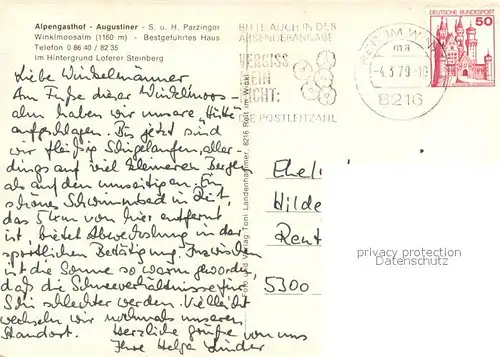 Alpengasthof - Augustiner - S. u. H. Parzinger
Winklmoosalm (1160 m) - Bestgeführtes Haus
Telefon 0 86 40 / 82 35
Im Hintergrund Loferer Steinberg
Liebe Winkelmänner
Am Fuße dieser Winkelmoos-
alm haben wir unsere "Hütte"
aufgeschlagen. Bis jetzt sind
wir fleißig Ski gelaufen, aller
dings auf viel kleineren Bergen
als auf den umseitigen. Ein
schönes Schwimmbad in Reit,
das 5 km von hier entfernt
ist, bietet Abwechslung in der
sportlichen Betätigung. Inzwischen
ist die Sonne so warm geworden,
daß die Schneeverhältnisse für
Ski schlechter werden. Vielleicht
wechseln wir nochmals unseren
Standort. Herzliche Grüße von uns
Ihre Helga Linder
Foto und Verlag Toni Landenhammer, 8216 Reit im Winkl
BITTE AUCH IN DER
ABSENDERANGABE
VERGISS
MEIN
NICHT:
DIE POSTLEITZAHL
REIT IM WINKL
ma
-4.3.79-10
8216
DEUTSCHE BUNDESPOST
50
Ehel
Hilde
Rent
5300
privacy protection
Datenschutz